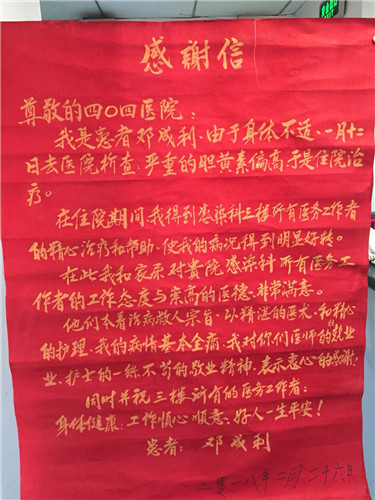 感謝信
尊敬的四〇四医院：
我是患者邓成利.由于身体不适、一月十二
日去医院检查.严重的胆黄素偏高.于是住院治
疗。
在住院期间.我得到感染科三楼所有医务工作者
的精心治疗和帮助.使我的病况得到明显好转。
在此我和家属对贵院感染科所有医务工
作者的工作态度与崇高的医德.非常满意。
他们本着治病救人宗旨.以精湛的医术.和精心
的护理.我的病情基本全痛.我对你们医师的敬业
业.护士的一丝不苟的敬业精神.表示衷心的感谢.
同时并祝三楼所有的医务工作者：
身体健康；工作顺心顺意.好人一生平安！
患者：邓成利
二零一八年二月二十六日